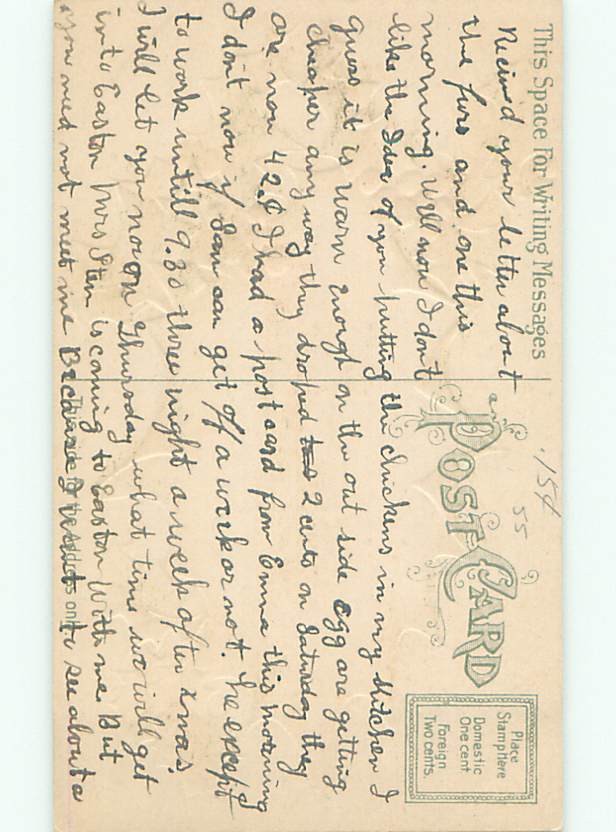 This Space For Writing Messages
Recieved your letter about
the furs and one this
morning. Well now I don't
like the Idea of you putting the chickens in my kitchen I
guess it is warm enough on the out side egg are getting
cheaper any way they droped 2 cents on Saturday they
are now 42.¢ I had a post card from Emma this morning
I don't now if Sam can get off a week or not. he expect
to work untill 9.30 three night a week after xmas.
I will let you now on Thursday what time we will get
into Easton Mrs Sten is coming to Easton With me But
you need not meet me Because I want to see about a
This side for address only.
POST CARD
15¢
55
Place
Stamp Here
Domestic
One cent
Foreign
Two cents.